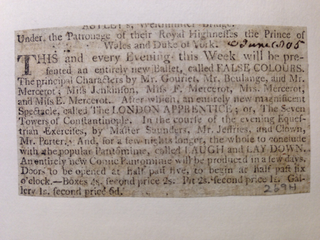 ASTLEY's, Westminster Bridge.
Under the Patronage of their Royal Highnesses the Prince of
Wales and Duke of York. June 1, 05
THIS and every Evening this Week will be pre-
sented an entirely new Ballet, called FALSE COLOURS.
The principal Characters by Mr. Gouriet, Mr. Boulange, and Mr.
Mercerot; Miss Jenkinson, Miss F. Mercerot, Mrs. Mercerot,
and Miss E. Mercerot. After which, an entirely new magnificent
Spectacle, called The LONDON APPRENTICE; or, The Seven
Towers of Constantinople. In the course of the evening Eques-
trian Exercises, by Master Saunders, Mr. Jefferies, and Clown,
Mr. Porter. And, for a few nights longer, the whole to conclude
with the popular Pantomime, called LAUGH and LAY DOWN.
An entirely new Comic Pantomime will be produced in a few days.
Doors to be opened at half past five, to begin at half past six
o'clock.—Boxes 4s. second price 2s. Pit 2s. second price 1s. Gal-
lery 1s. second price 6d.